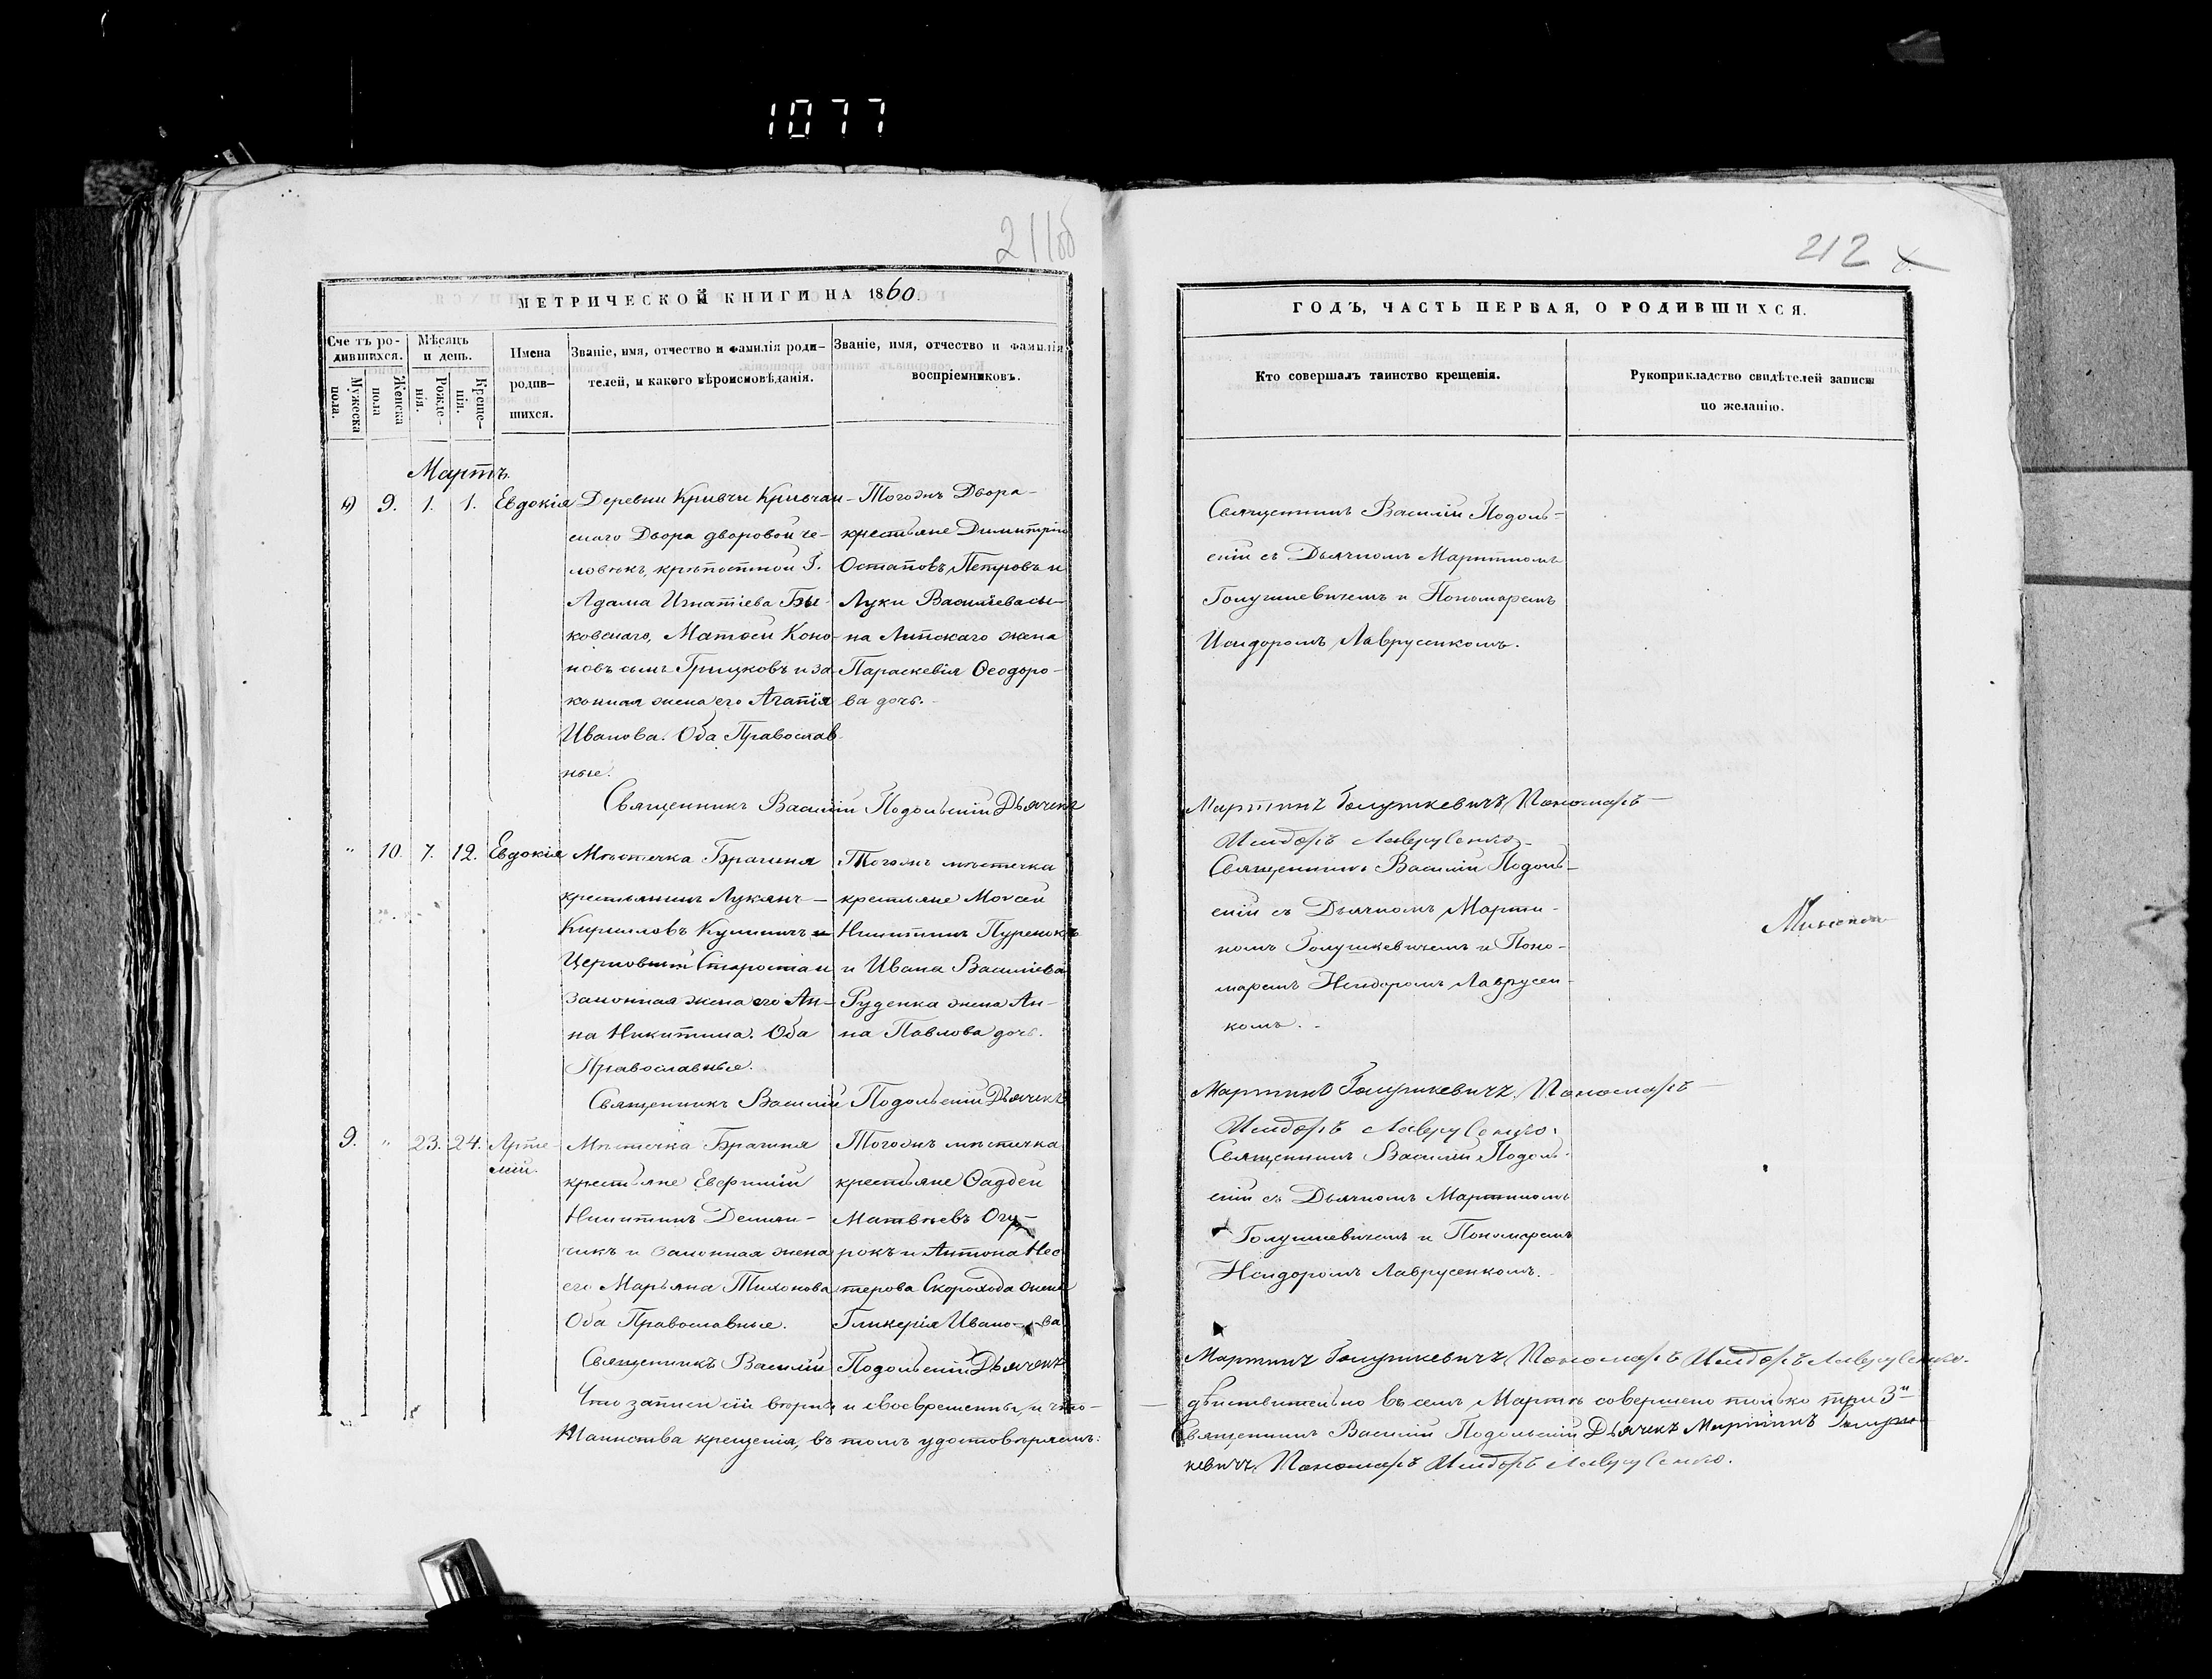 1077
211об
МЕТРИЧЕСКОЙ КНИГИ НА 1860.
Сче тъ ро-
дившихся.
Мѣсяцъ
и день.
Мужеска
пола.
Женска
пола
Рожде-
нія.
Креще-
нія.
Имена
родив-
шихся.
Званіе, имя, отчество и фамилія роди-
телей, и какого вѣроисповѣданія.
Званіе, имя, отчество и фамилія
воспріемниковъ.
Мартъ.
9. 1. 1. Евдокія
Деревни Кривчи Кривчан-
скаго Двора дворовой че-
ловѣкъ, крѣпостной Г.
Адама Игнатіева Бы-
ковскаго, Матѳей Коно-
новъ сынъ Грицковъ и за-
конная жена его Агапія
Иванова. Оба Православ-
ные.
Тогожъ Двора
крестьяне Димитрій
Остаповъ Петровъ и
Луки Василіева сы-
на Липскаго жена
Параскевія Ѳеодоро-
ва дочь.
Священникъ Василій Подольскій Дьячекъ
" 10. 7. 12. Евдокія
Мѣстечка Брагиня
крестьянинъ Лукянъ
Кирилловъ Кулиничъ
Церковный Староста и
законная жена его Ан-
на Никитина. Оба
Православные.
Тогожъ мѣстечка
крестьяне Моѵсей
Никитинъ Пуренокъ
и Ивана Василіева
Руденка жена Ан-
на Павлова дочь.
Священникъ Василій Подольскій Дьячекъ
9. " 23. 24. Арте-
мій.
Мѣстечка Брагиня
крестьяне Евфимій
Никитинъ Демян-
чикъ и законная жена
его Марьяна Тихонова
Оба Православные.
Тогожъ мѣстечка
крестьяне Ѳадей
Матвѣевъ Огу-
рокъ и Антона Нес-
терова Скорохода жена
Гликерія Ивано-ва
Священникъ Василій Подольскій Дьячекъ
Что записи сіи вѣрны и своевременны, и что
Таинства крещенія, въ томъ удостовѣряемъ:
212
ГОДЪ, ЧАСТЬ ПЕРВАЯ, О РОДИВШИХСЯ.
Кто совершалъ таинство крещенія.
Рукоприкладство свидѣтелей записи
по желанію.
Священникъ Василій Подоль-
скій съ Дьячкомъ Мартиномъ
Голушкевичемъ и Пономаремъ
Исидоромъ Лаврусенкомъ.
Мартинъ Голушкевичъ, Пономарь
Исидоръ Лаврусенко
Священникъ Василій Подоль-
скій съ Дьячкомъ Марти-
номъ Голушкевичемъ и Поно-
маремъ Исидоромъ Лаврусен-
комъ.
Мартинъ Голушкевичъ, Пономарь
Исидоръ Лаврусенко.
Священникъ Василій Подоль-
скій съ Дьячкомъ Мартиномъ
Голушкевичемъ и Пономаремъ
Исидоромъ Лаврусенкомъ.
Мартинъ Голушкевичъ, Пономарь Исидоръ Лаврусенко.
дѣйствительно въ семъ Мартѣ совершено только три 3"
Священникъ Василій Подольскій Дьячекъ Мартинъ Голуш-
кевичъ, Пономарь Исидоръ Лаврусенко.